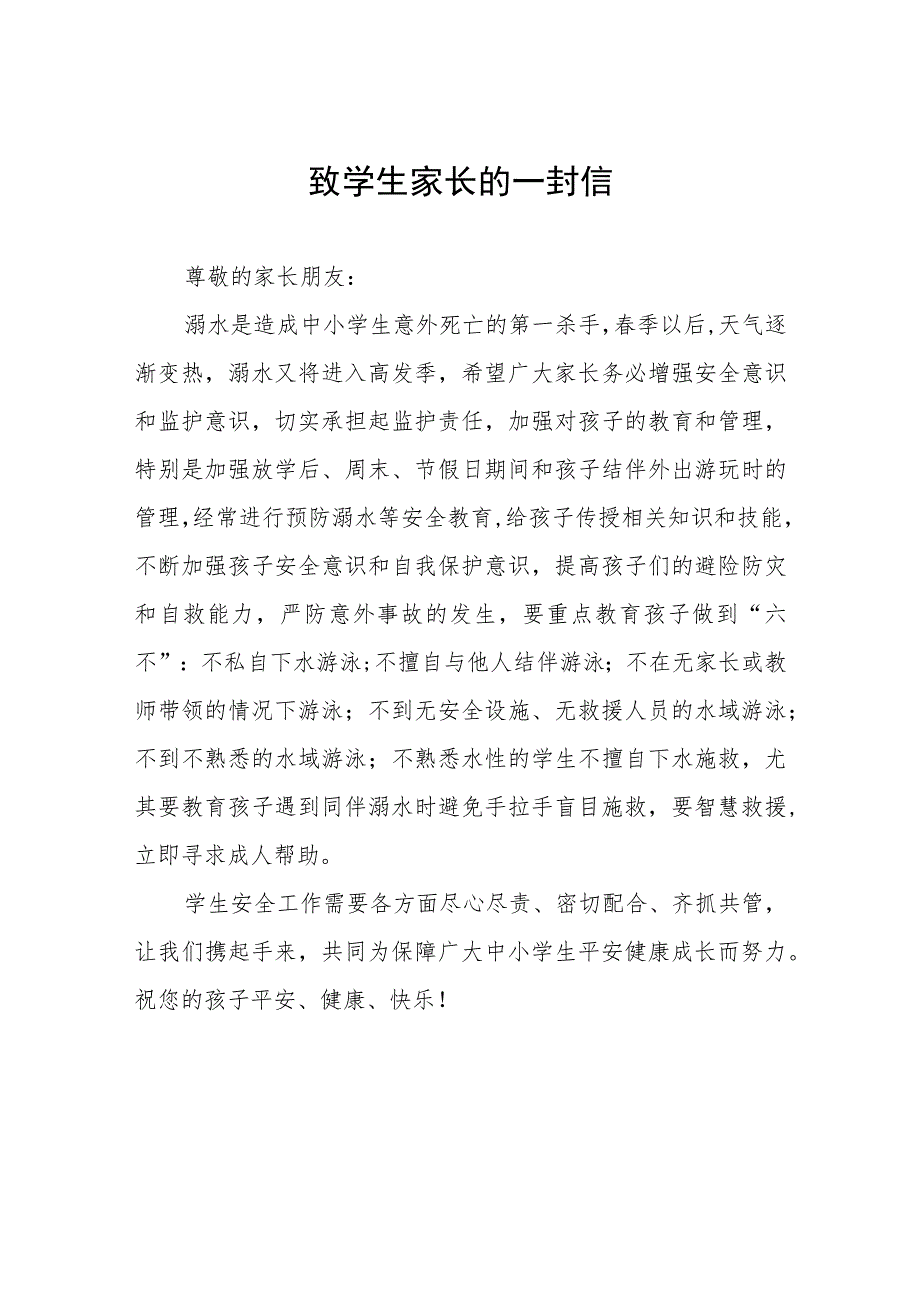 致学生家长的一封信
尊敬的家长朋友：
溺水是造成中小学生意外死亡的第一杀手,春季以后,天气逐
渐变热，溺水又将进入高发季，希望广大家长务必增强安全意识
和监护意识，切实承担起监护责任，加强对孩子的教育和管理，
特别是加强放学后、周末、节假日期间和孩子结伴外出游玩时的
管理,经常进行预防溺水等安全教育,给孩子传授相关知识和技能，
不断加强孩子安全意识和自我保护意识，提高孩子们的避险防灾
和自救能力，严防意外事故的发生，要重点教育孩子做到“六
不”：不私自下水游泳;不擅自与他人结伴游泳；不在无家长或教
师带领的情况下游泳；不到无安全设施、无救援人员的水域游泳；
不到不熟悉的水域游泳；不熟悉水性的学生不擅自下水施救，尤
其要教育孩子遇到同伴溺水时避免手拉手盲目施救，要智慧救援,
立即寻求成人帮助。
学生安全工作需要各方面尽心尽责、密切配合、齐抓共管，
让我们携起手来，共同为保障广大中小学生平安健康成长而努力。
祝您的孩子平安、健康、快乐！